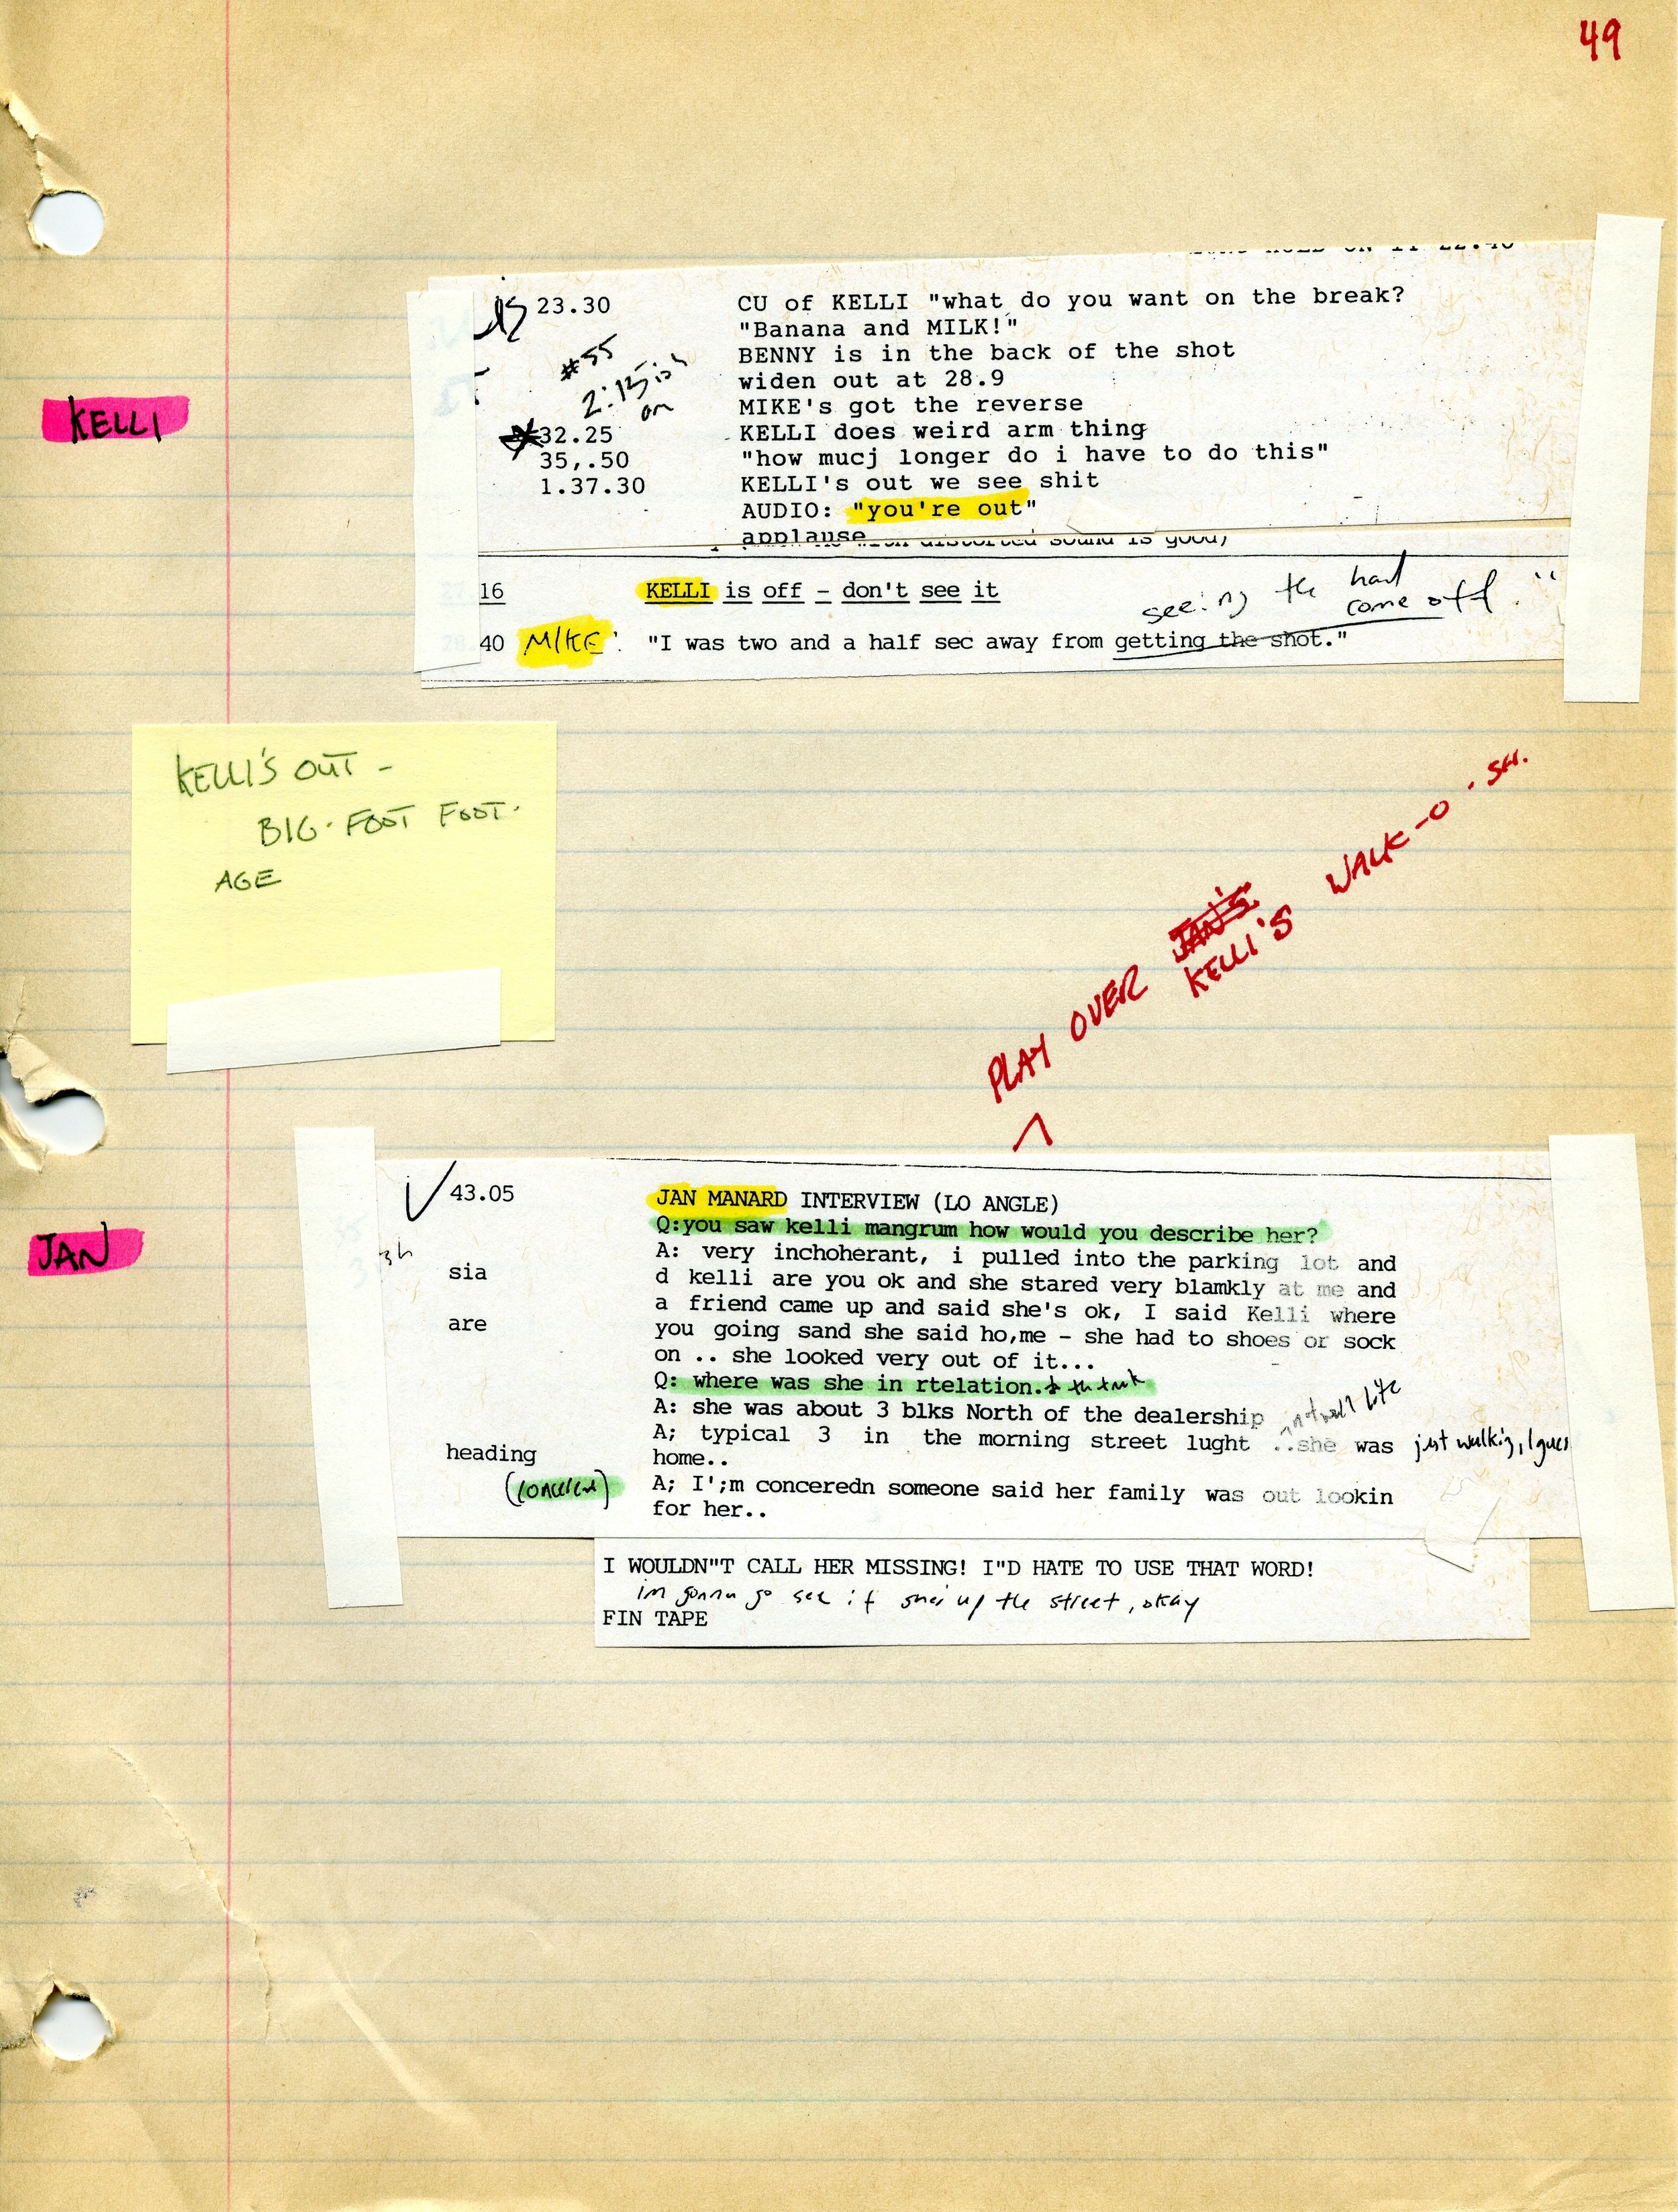 49
23.30 CU of KELLI "what do you want on the break?
"Banana and MILK!"
#55
BENNY is in the back of the shot
widen out at 28.9
on
MIKE's got the reverse
KELLI
32.25 KELLI does weird arm thing
35,.50 "how mucj longer do i have to do this"
1.37.30 KELLI's out we see shit
AUDIO: "you're out"
applause
seeing the hand
come off."
16 KELLI is off - don't see it
40 MIKE: "I was two and a half sec away from getting the shot."
KELLI'S OUT -
BIG-FOOT FOOT-
AGE
PLAY OVER JAN'S KELLI'S WALK-O
JAN
43.05 JAN MANARD INTERVIEW (LO ANGLE)
Q:you saw kelli mangrum how would you describe her?
A: very inchoherant, i pulled into the parking lot and
sia d kelli are you ok and she stared very blamkly at me and
a friend came up and said she's ok, I said Kelli where
are you going sand she said ho,me - she had to shoes or sock
on .. she looked very out of it...
Q: where was she in rtelation.
A: she was about 3 blks North of the dealership
A; typical 3 in the morning street lught ..she was just walking, I guess
heading home..
A; I';m conceredn someone said her family was out lookin
for her..
I WOULDN"T CALL HER MISSING! I"D HATE TO USE THAT WORD!
im gonna go see if she's up the street, okay
FIN TAPE